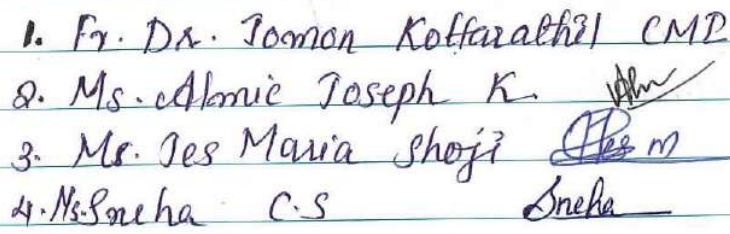 1. Fr. Dr. Jomon Kottarathil CMI
2. Ms. Almie Joseph K.
3. Ms. Jes Maria Shoji Jes m
4. Ms. Sneha C.S Sneha